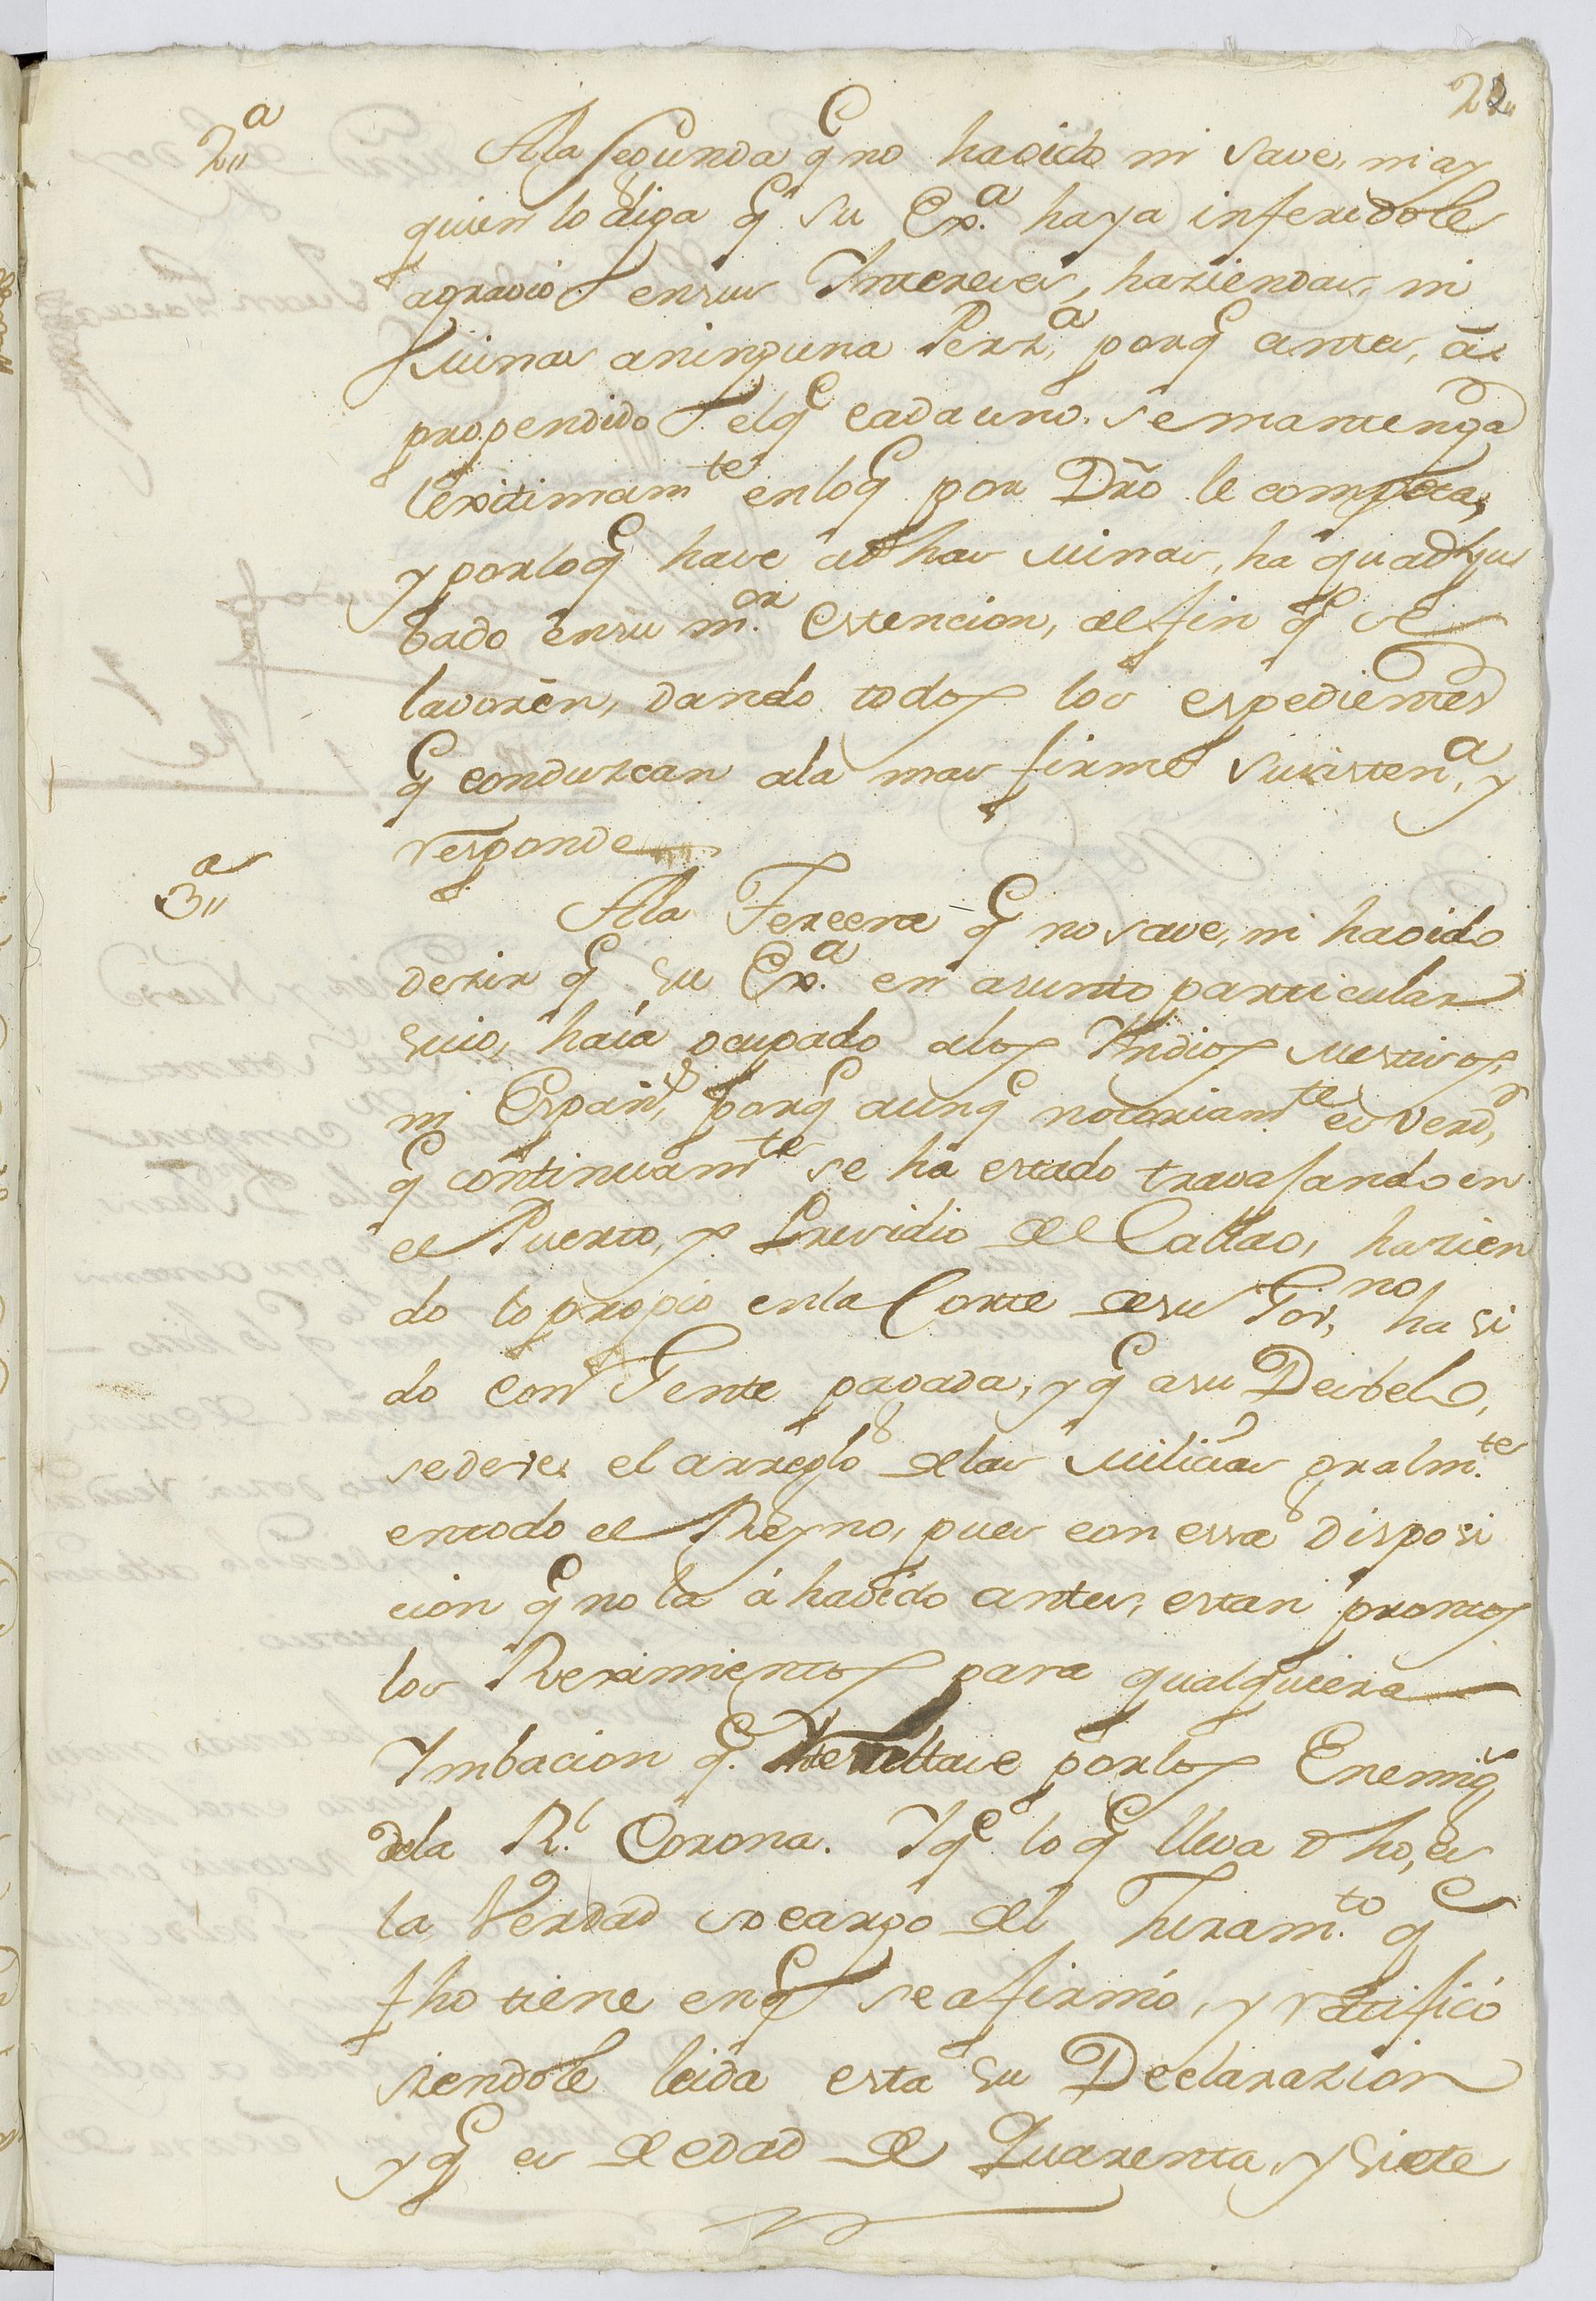 22
2ª
Ala segunda q.e no haoido ni save, ni ay
quien lo diga q.e su Exª haya inferidole
agravio en sus Intereses, haziendas, ni
Minas aninguna Perzª, porq.e antes, á
propendido el q.e cada uno se mantenga
lexitimamte en loq.e por Dro le competa,
y por loq.e hace a dhas minas, ha quadyu
bado en su mor estencion, a el fin q.e se
lavoren, dando todos los espedientes
q.e conduzcan ala mas firme suvistenª, y
responde
3ª
Ala Tercera q.e no save, ni haoido
dezir q.e su Exª en asunto particular
suio, haia ocupado alos Yndios mestizos,
ni Españs, porq.e aunq.e notoriamte es verd,
q.e continuamte se ha estado travajando en
el Puerto, y Presidio del Callao, hazien
do lo propio en la Corte de su Govno, ha si
do con Gente pagada, y q.e a su Desbelo,
se deve el arreglo de las Milicias gralmte
en todo el Reyno, pues con essa disposi
cion q.e no la á havido antes, estan prontos
los Reximientos para qualquiera
Imbacion q.e resultase por los Enemigs
dela Rl Corona. Y q.e lo q.e lleva dho, es
la Verdad so cargo del Juramto q.e
fho tiene en q.e se afirmó, y ratificó
siendole leida esta su Declarazion
y q.e es de edad de Quarenta, y siete